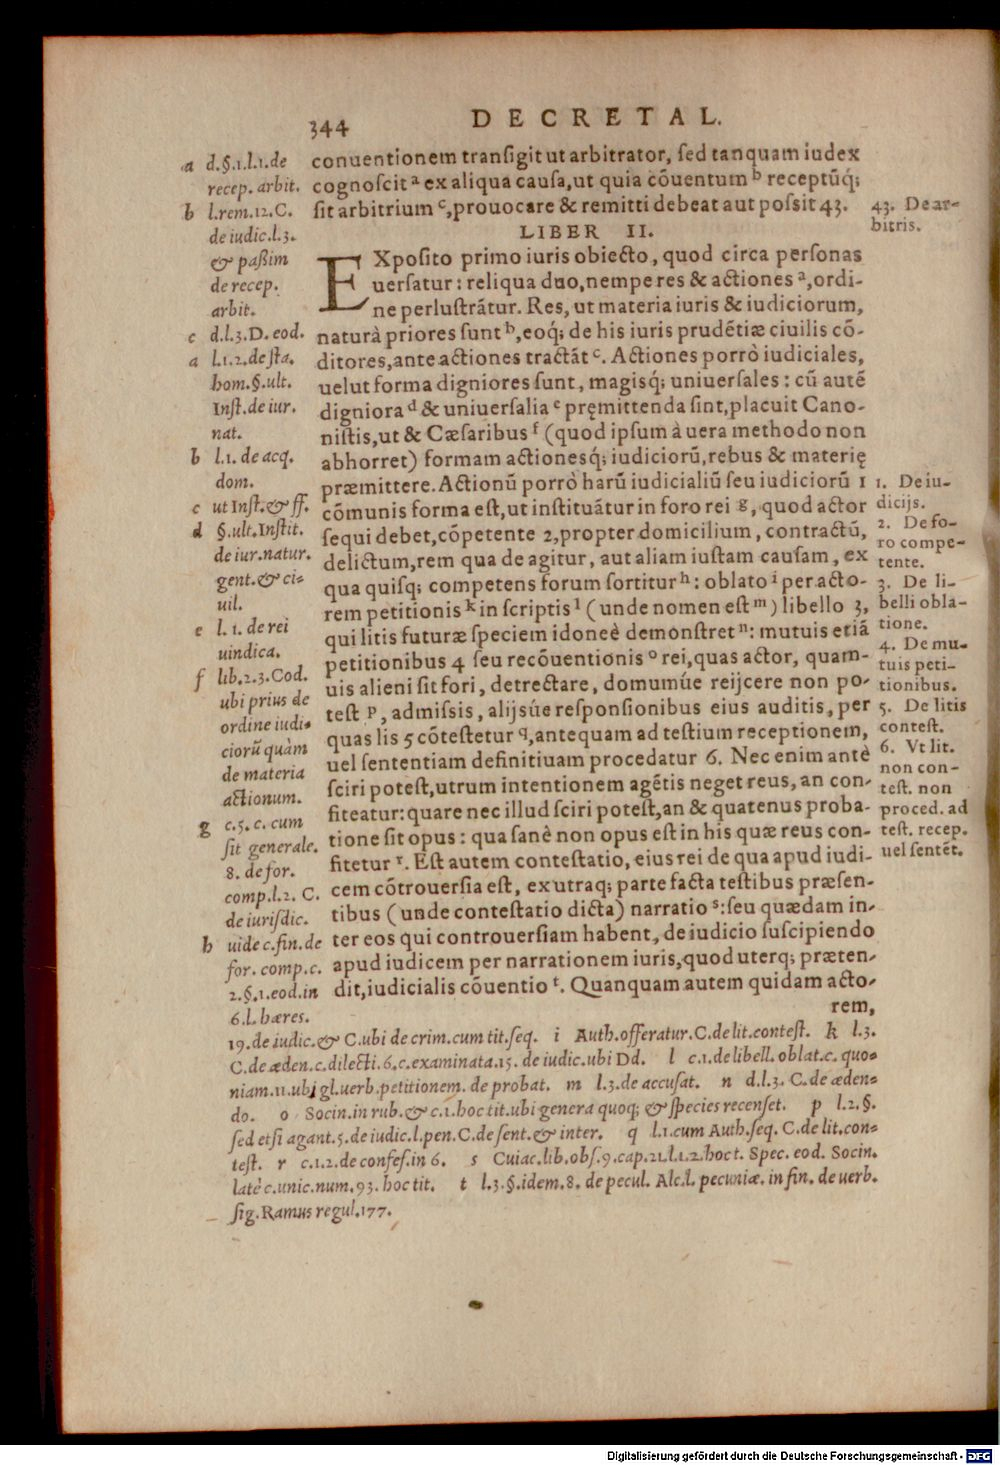 344
DECRETAL.
conuentionem transigit ut arbitrator, sed tanquam iudex
cognoscit ᵃ ex aliqua causa, ut quia cōuentum ᵇ receptūq;
sit arbitrium ᶜ, prouocare & remitti debeat aut possit 43.
LIBER II.
EXposito primo iuris obiecto, quod circa personas
uersatur: reliqua duo, nempe res & actiones ᵃ, ordi-
ne perlustrātur. Res, ut materia iuris & iudiciorum,
naturà priores sunt ᵇ, eoq; de his iuris prudētiæ ciuilis cō-
ditores, ante actiones tractāt ᶜ. Actiones porrò iudiciales,
uelut forma digniores sunt, magisq; uniuersales: cū autē
digniora ᵈ & uniuersalia ᵉ pręmittenda sint, placuit Cano-
nistis, ut & Cæsaribus ᶠ (quod ipsum à uera methodo non
abhorret) formam actionesq; iudiciorū, rebus & materię
præmittere. Actionū porrò harū iudicialiū seu iudiciorū 1
cōmunis forma est, ut instituātur in foro rei g, quod actor
sequi debet, cōpetente 2, propter domicilium, contractū,
delictum, rem qua de agitur, aut aliam iustam causam, ex
qua quisq; competens forum sortitur ʰ: oblato ⁱ per acto-
rem petitionis ᵏ in scriptis ˡ (unde nomen est ᵐ) libello 3,
qui litis futuræ speciem idoneè demonstret ⁿ: mutuis etiā
petitionibus 4 seu recōuentionis ᵒ rei, quas actor, quam-
uis alieni sit fori, detrectare, domumúe reijcere non po-
test ᵖ, admissis, alijsúe responsionibus eius auditis, per
quas lis 5 cōtestetur q, antequam ad testium receptionem,
uel sententiam definitiuam procedatur 6. Nec enim antè
sciri potest, utrum intentionem agētis neget reus, an con-
fiteatur: quare nec illud sciri potest, an & quatenus proba-
tione sit opus: qua sanè non opus est in his quæ reus con-
fitetur ʳ. Est autem contestatio, eius rei de qua apud iudi-
cem cōtrouersia est, ex utraq; parte facta testibus præsen-
tibus (unde contestatio dicta) narratio ˢ: seu quædam in-
ter eos qui controuersiam habent, de iudicio suscipiendo
apud iudicem per narrationem iuris, quod uterq; præten-
dit, iudicialis cōuentio ᵗ. Quanquam autem quidam acto-
rem,
a d.§.1.l.1.de
recep. arbit.
b l.rem.12.C.
de iudic.l.3.
& paßim
de recep.
arbit.
c d.l.3.D. eod.
a l.1.2.de sta.
hom.§.ult.
Inst. de iur.
nat.
b l.1. de acq.
dom.
c ut Inst. & ff.
d §.ult. Instit.
de iur. natur.
gent. & ci-
uil.
e l. 1. de rei
uindica.
f lib.2.3.Cod.
ubi prius de
ordine iudi-
ciorū quàm
de materia
actionum.
g c.5.c. cum
sit generale.
8. de for.
comp.l.2. C.
de iurisdic.
h uide c.fin.de
for. comp.c.
2.§.1.eod.in
6.l.hæres.
19.de iudic.& C.ubi de crim.cum tit.seq. i Auth.offeratur.C.de lit.contest. k l.3.
C.de æden.c.dilecti.6.c.examinata.15. de iudic.ubi Dd. l c.1.de libell. oblat.c. quo-
niam.11.ubi gl.uerb.petitionem. de probat. m l.3.de accusat. n d.l.3. C.de æden-
do. o Socin.in rub.& c.1.hoc tit.ubi genera quoq; & species recenset. p l.2.§.
sed etsi agant.5.de iudic.l.pen.C.de sent.& inter. q l.1.cum Auth.seq. C.de lit.con-
test. r c.1.2.de confes.in 6. s Cuiac.lib.obs.9.cap.21.l.1.2.hoc t. Spec. eod. Socin.
latè c.unic.num.93. hoc tit. t l.3.§.idem.8. de pecul. Alc.l. pecuniæ.in fin. de uerb.
sig. Ramus regul.177.
43. De ar-
bitris.
1. De iu-
dicijs.
2. De fo-
ro compe-
tente.
3. De li-
belli obla-
tione.
4. De mu-
tuis peti-
tionibus.
5. De litis
contest.
6. Vt lit.
non con-
test. non
proced. ad
test. recep.
uel sentēt.
Digitalisierung gefördert durch die Deutsche Forschungsgemeinschaft - DFG